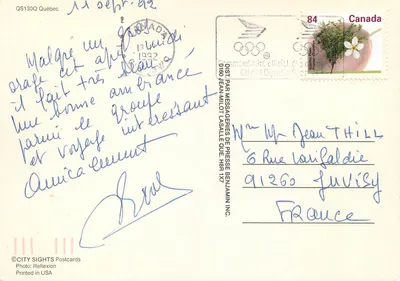 11 sept. 92
QS130Q Québec
Malgré un gros
orage cet après midi
il fait très beau
une bonne ambiance
parmi le groupe
et voyage intéressant
Amicalement
CANADA
1992
84 Canada
DIST. PAR MESSAGERIES DE PRESSE BENJAMIN INC.
0160 JEAN-MILOT LASALLE QUE. H8R 1X7
Jean THILL
6 Rue
91260 JUVISY
FRANCE
©CITY SIGHTS Postcards
Photo: Reflexion
Printed in USA